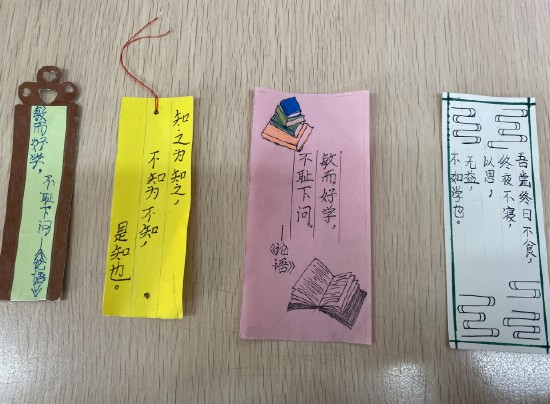 敏而好学，
不耻下问——《论语》
知之为知之，
不知为不知，
是知也。
敏而好学，
不耻下问。
——《论语》
吾尝终日不食，
终夜不寝，
以思，
无益，
不如学也。